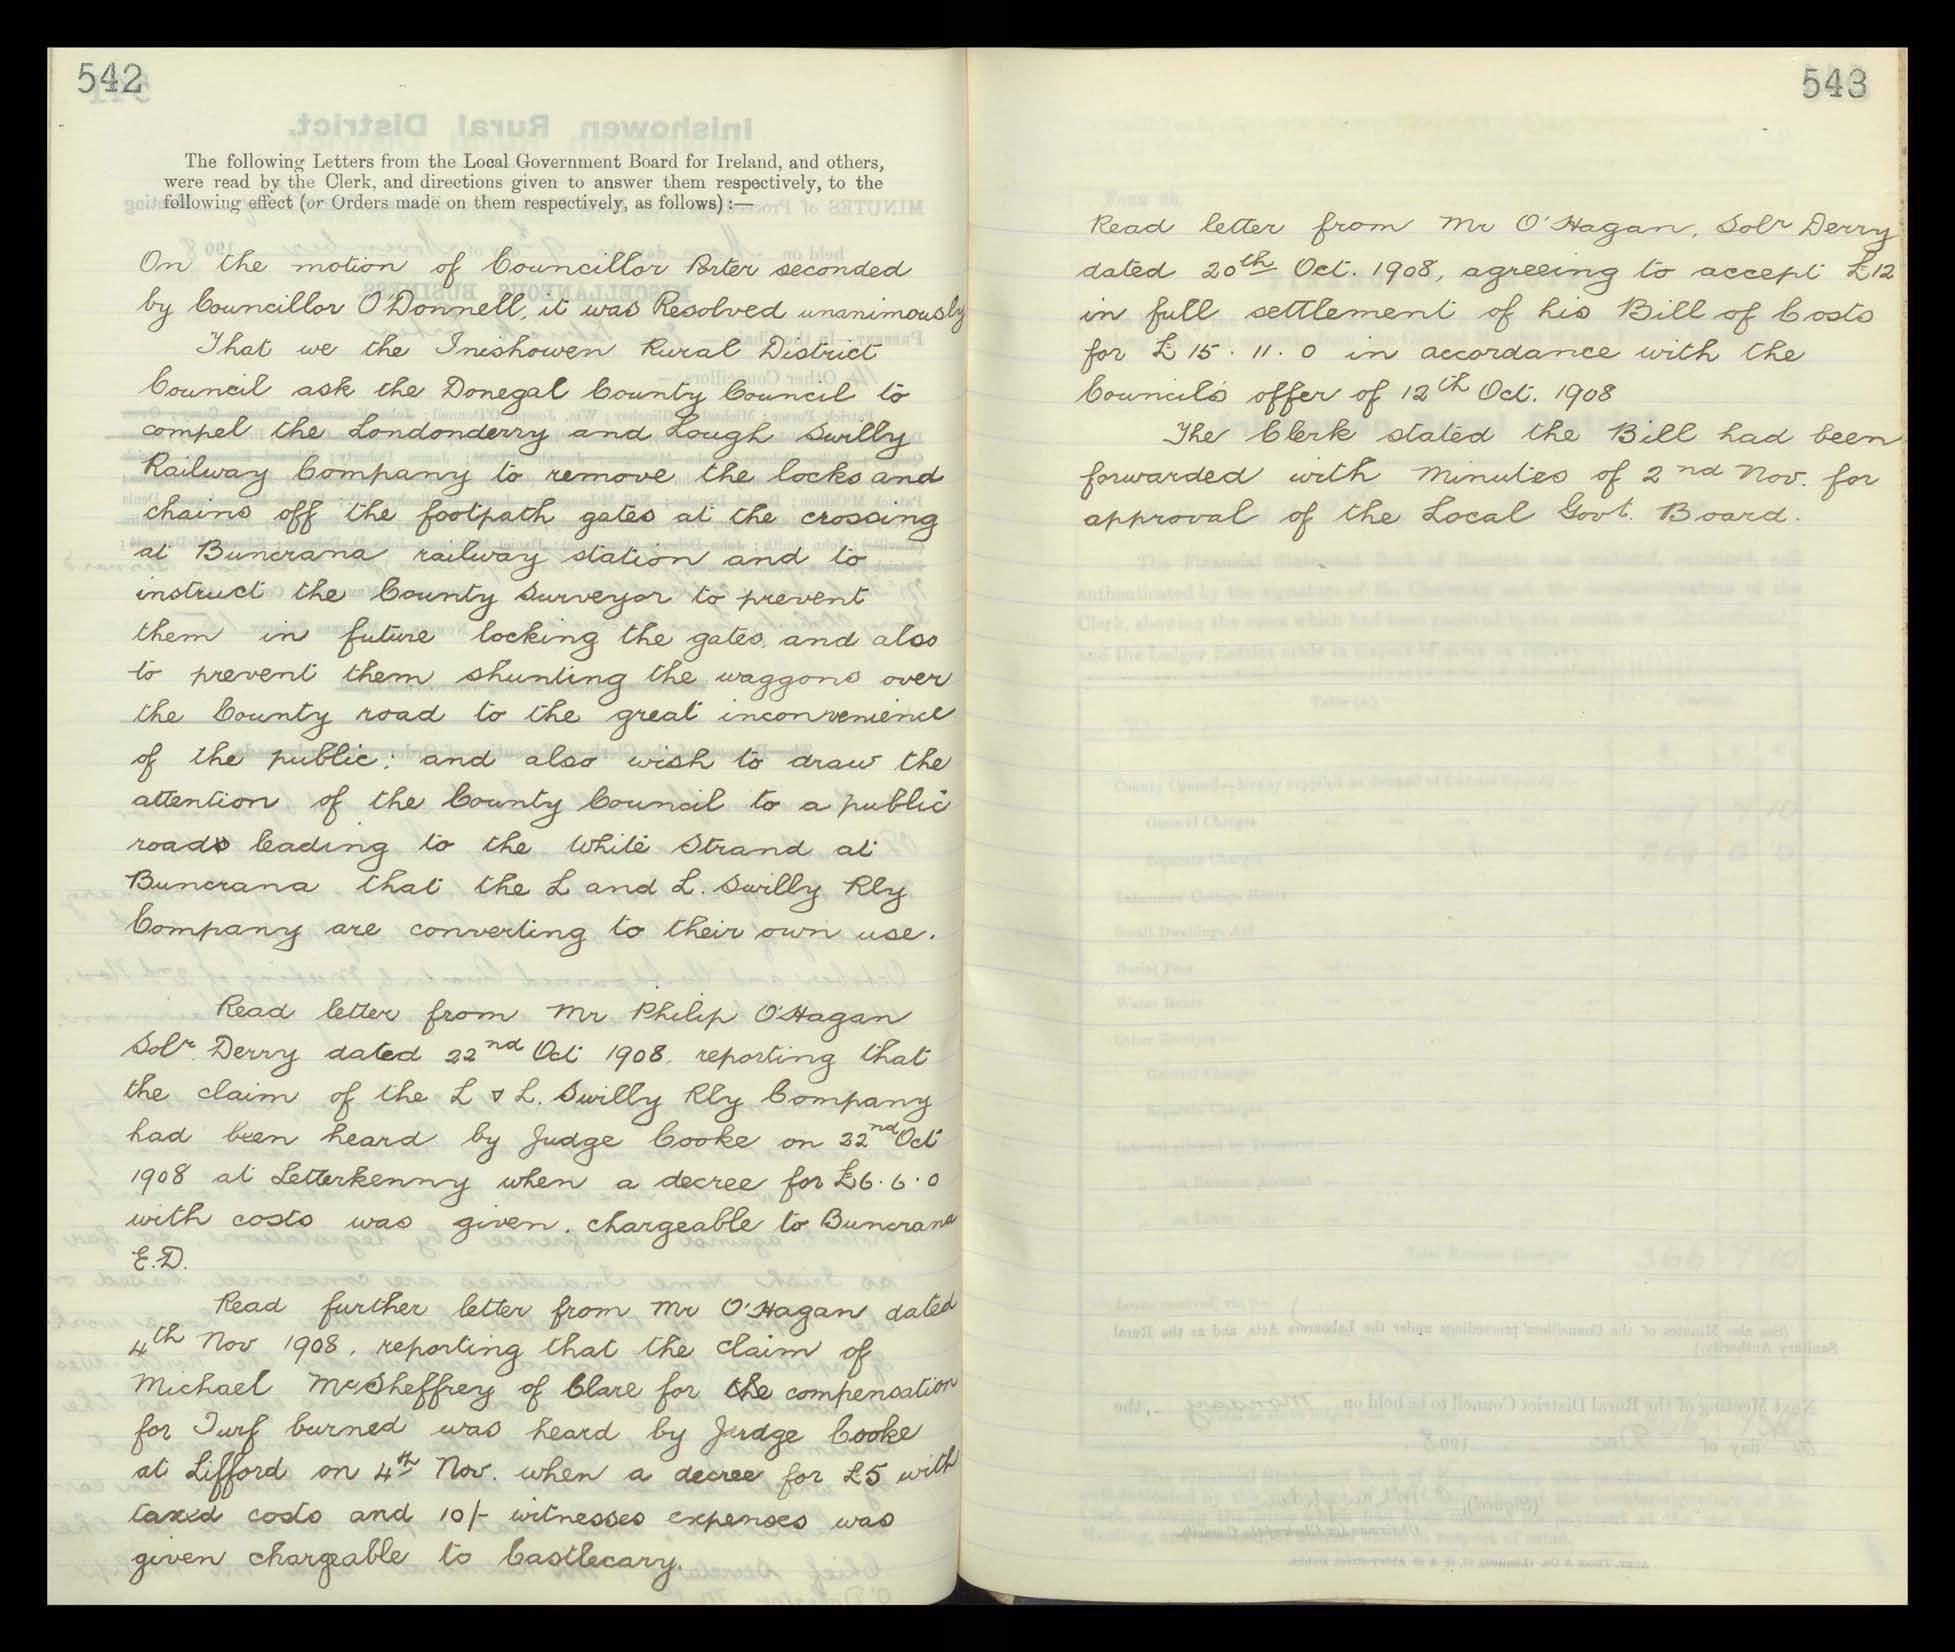 542
The following Letters from the Local Government Board for Ireland, and others,
were read by the Clerk, and directions given to answer them respectively, to the
following effect (or Orders made on them respectively, as follows) :—
On the motion of Councillor Porter seconded
by Councillor O'Donnell, it was Resolved unanimously
That we the Inishowen Rural District
Council ask the Donegal County Council to
compel the Londonderry and Lough Swilly
Railway Company to remove the locks and
chains off the footpath gates at the crossing
at Buncrana railway station and to
instruct the County Surveyor to prevent
them in future locking the gates, and also
to prevent them shunting the waggons over
the County road to the great inconvenience
of the public; and also wish to draw the
attention of the County Council to a public
road leading to the White Strand at
Buncrana that the L and L. Swilly Rly
Company are converting to their own use.
Read letter from Mr Philip O'Hagan
Solr. Derry dated 22nd Oct 1908. reporting that
the claim of the L & L. Swilly Rly Company
had been heard by Judge Cooke on 22nd Oct
1908 at Letterkenny when a decree for £6.6.0
with costs was given, chargeable to Buncrana
E.D.
Read further letter from Mr O'Hagan dated
4th Nov 1908, reporting that the claim of
Michael McSheffrey of Clare for the compensation
for Turf burned was heard by Judge Cooke
at Lifford on 4th Nov. when a decree for £5 with
taxed costs and 10/- witnesses expenses was
given chargeable to Castlecary.
543
Read letter from Mr O'Hagan, Solr Derry
dated 20th Oct. 1908, agreeing to accept £12
in full settlement of his Bill of Costs
for £15.11.0 in accordance with the
Council's offer of 12th Oct. 1908
The Clerk stated the Bill had been
forwarded with Minutes of 2nd Nov. for
approval of the Local Govt. Board.